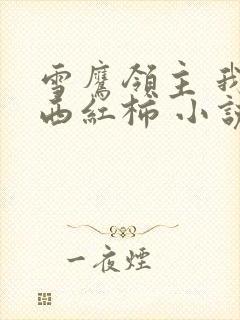 雪鷹領主 我
西紅柿 小說
一夜煙